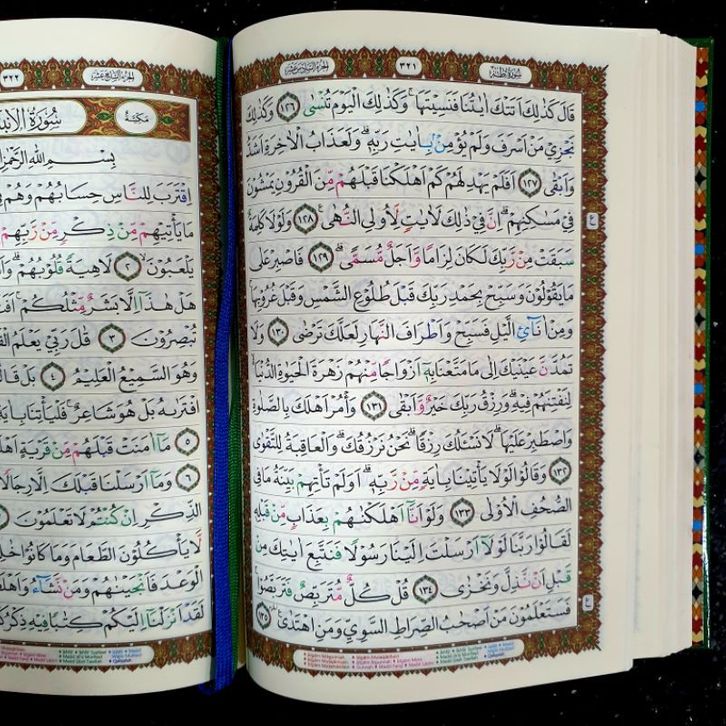 سُورَةُ طٰهٰ ٣٢١ الجزء السادس عشر
قَالَ كَذٰلِكَ اَتَتْكَ اٰيٰتُنَا فَنَسِيْتَهَاۚ وَكَذٰلِكَ الْيَوْمَ تُنْسٰى ۝١٢٦ وَكَذٰلِكَ
نَجْزِيْ مَنْ اَسْرَفَ وَلَمْ يُؤْمِنْۢ بِاٰيٰتِ رَبِّهٖۗ وَلَعَذَابُ الْاٰخِرَةِ اَشَدُّ
وَاَبْقٰى ۝١٢٧ اَفَلَمْ يَهْدِ لَهُمْ كَمْ اَهْلَكْنَا قَبْلَهُمْ مِّنَ الْقُرُوْنِ يَمْشُوْنَ
فِيْ مَسٰكِنِهِمْۗ اِنَّ فِيْ ذٰلِكَ لَاٰيٰتٍ لِّاُولِى النُّهٰى ۝١٢٨ وَلَوْلَا كَلِمَةٌ
سَبَقَتْ مِنْ رَّبِّكَ لَكَانَ لِزَامًا وَّاَجَلٌ مُّسَمًّىۗ ۝١٢٩ فَاصْبِرْ عَلٰى
مَا يَقُوْلُوْنَ وَسَبِّحْ بِحَمْدِ رَبِّكَ قَبْلَ طُلُوْعِ الشَّمْسِ وَقَبْلَ غُرُوْبِهَاۚ
وَمِنْ اٰنَاۤئِ الَّيْلِ فَسَبِّحْ وَاَطْرَافَ النَّهَارِ لَعَلَّكَ تَرْضٰى ۝١٣٠ وَلَا
تَمُدَّنَّ عَيْنَيْكَ اِلٰى مَا مَتَّعْنَا بِهٖٓ اَزْوَاجًا مِّنْهُمْ زَهْرَةَ الْحَيٰوةِ الدُّنْيَا
لِنَفْتِنَهُمْ فِيْهِۗ وَرِزْقُ رَبِّكَ خَيْرٌ وَّاَبْقٰى ۝١٣١ وَأْمُرْ اَهْلَكَ بِالصَّلٰوةِ
وَاصْطَبِرْ عَلَيْهَاۗ لَا نَسْـَٔلُكَ رِزْقًاۗ نَحْنُ نَرْزُقُكَۗ وَالْعَاقِبَةُ لِلتَّقْوٰى
۝١٣٢ وَقَالُوْا لَوْلَا يَأْتِيْنَا بِاٰيَةٍ مِّنْ رَّبِّهٖۗ اَوَلَمْ تَأْتِهِمْ بَيِّنَةُ مَا فِى
الصُّحُفِ الْاُوْلٰى ۝١٣٣ وَلَوْ اَنَّآ اَهْلَكْنٰهُمْ بِعَذَابٍ مِّنْ قَبْلِهٖ
لَقَالُوْا رَبَّنَا لَوْلَآ اَرْسَلْتَ اِلَيْنَا رَسُوْلًا فَنَتَّبِعَ اٰيٰتِكَ مِنْ
قَبْلِ اَنْ نَّذِلَّ وَنَخْزٰى ۝١٣٤ قُلْ كُلٌّ مُّتَرَبِّصٌ فَتَرَبَّصُوْاۚ
فَسَتَعْلَمُوْنَ مَنْ اَصْحٰبُ الصِّرَاطِ السَّوِيِّ وَمَنِ اهْتَدٰى ۝١٣٥
الجزء السابع عشر ٣٢٢
سُوْرَةُ مَكِّيَّة
بِسْمِ اللّٰهِ
اِقْتَرَبَ لِلنَّاسِ حِسَابُهُمْ وَهُمْ
مَا يَأْتِيْهِمْ مِّنْ ذِكْرٍ مِّنْ رَّبِّهِمْ
يَلْعَبُوْنَ ۝٢ لَاهِيَةً قُلُوْبُهُمْۗ
هَلْ هٰذَآ اِلَّا بَشَرٌ مِّثْلُكُمْۚ
تُبْصِرُوْنَ ۝٣ قٰلَ رَبِّيْ يَعْلَمُ
وَهُوَ السَّمِيْعُ الْعَلِيْمُ ۝٤ بَلْ
افْتَرٰىهُ بَلْ هُوَ شَاعِرٌۚ فَلْيَأْتِنَا
۝٥ مَآ اٰمَنَتْ قَبْلَهُمْ مِّنْ قَرْيَةٍ
۝٦ وَمَآ اَرْسَلْنَا قَبْلَكَ اِلَّا رِجَالًا
الذِّكْرِ اِنْ كُنْتُمْ لَا تَعْلَمُوْنَ
لَّا يَأْكُلُوْنَ الطَّعَامَ وَمَا كَانُوْا
الْوَعْدَ فَاَنْجَيْنٰهُمْ وَمَنْ نَّشَاۤءُ
لَقَدْ اَنْزَلْنَآ اِلَيْكُمْ كِتٰبًا فِيْهِ